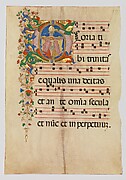 Gloria ti
bi trinitas
equalis una deitas
et ante omnia secula
et nunc et in perpetuum.